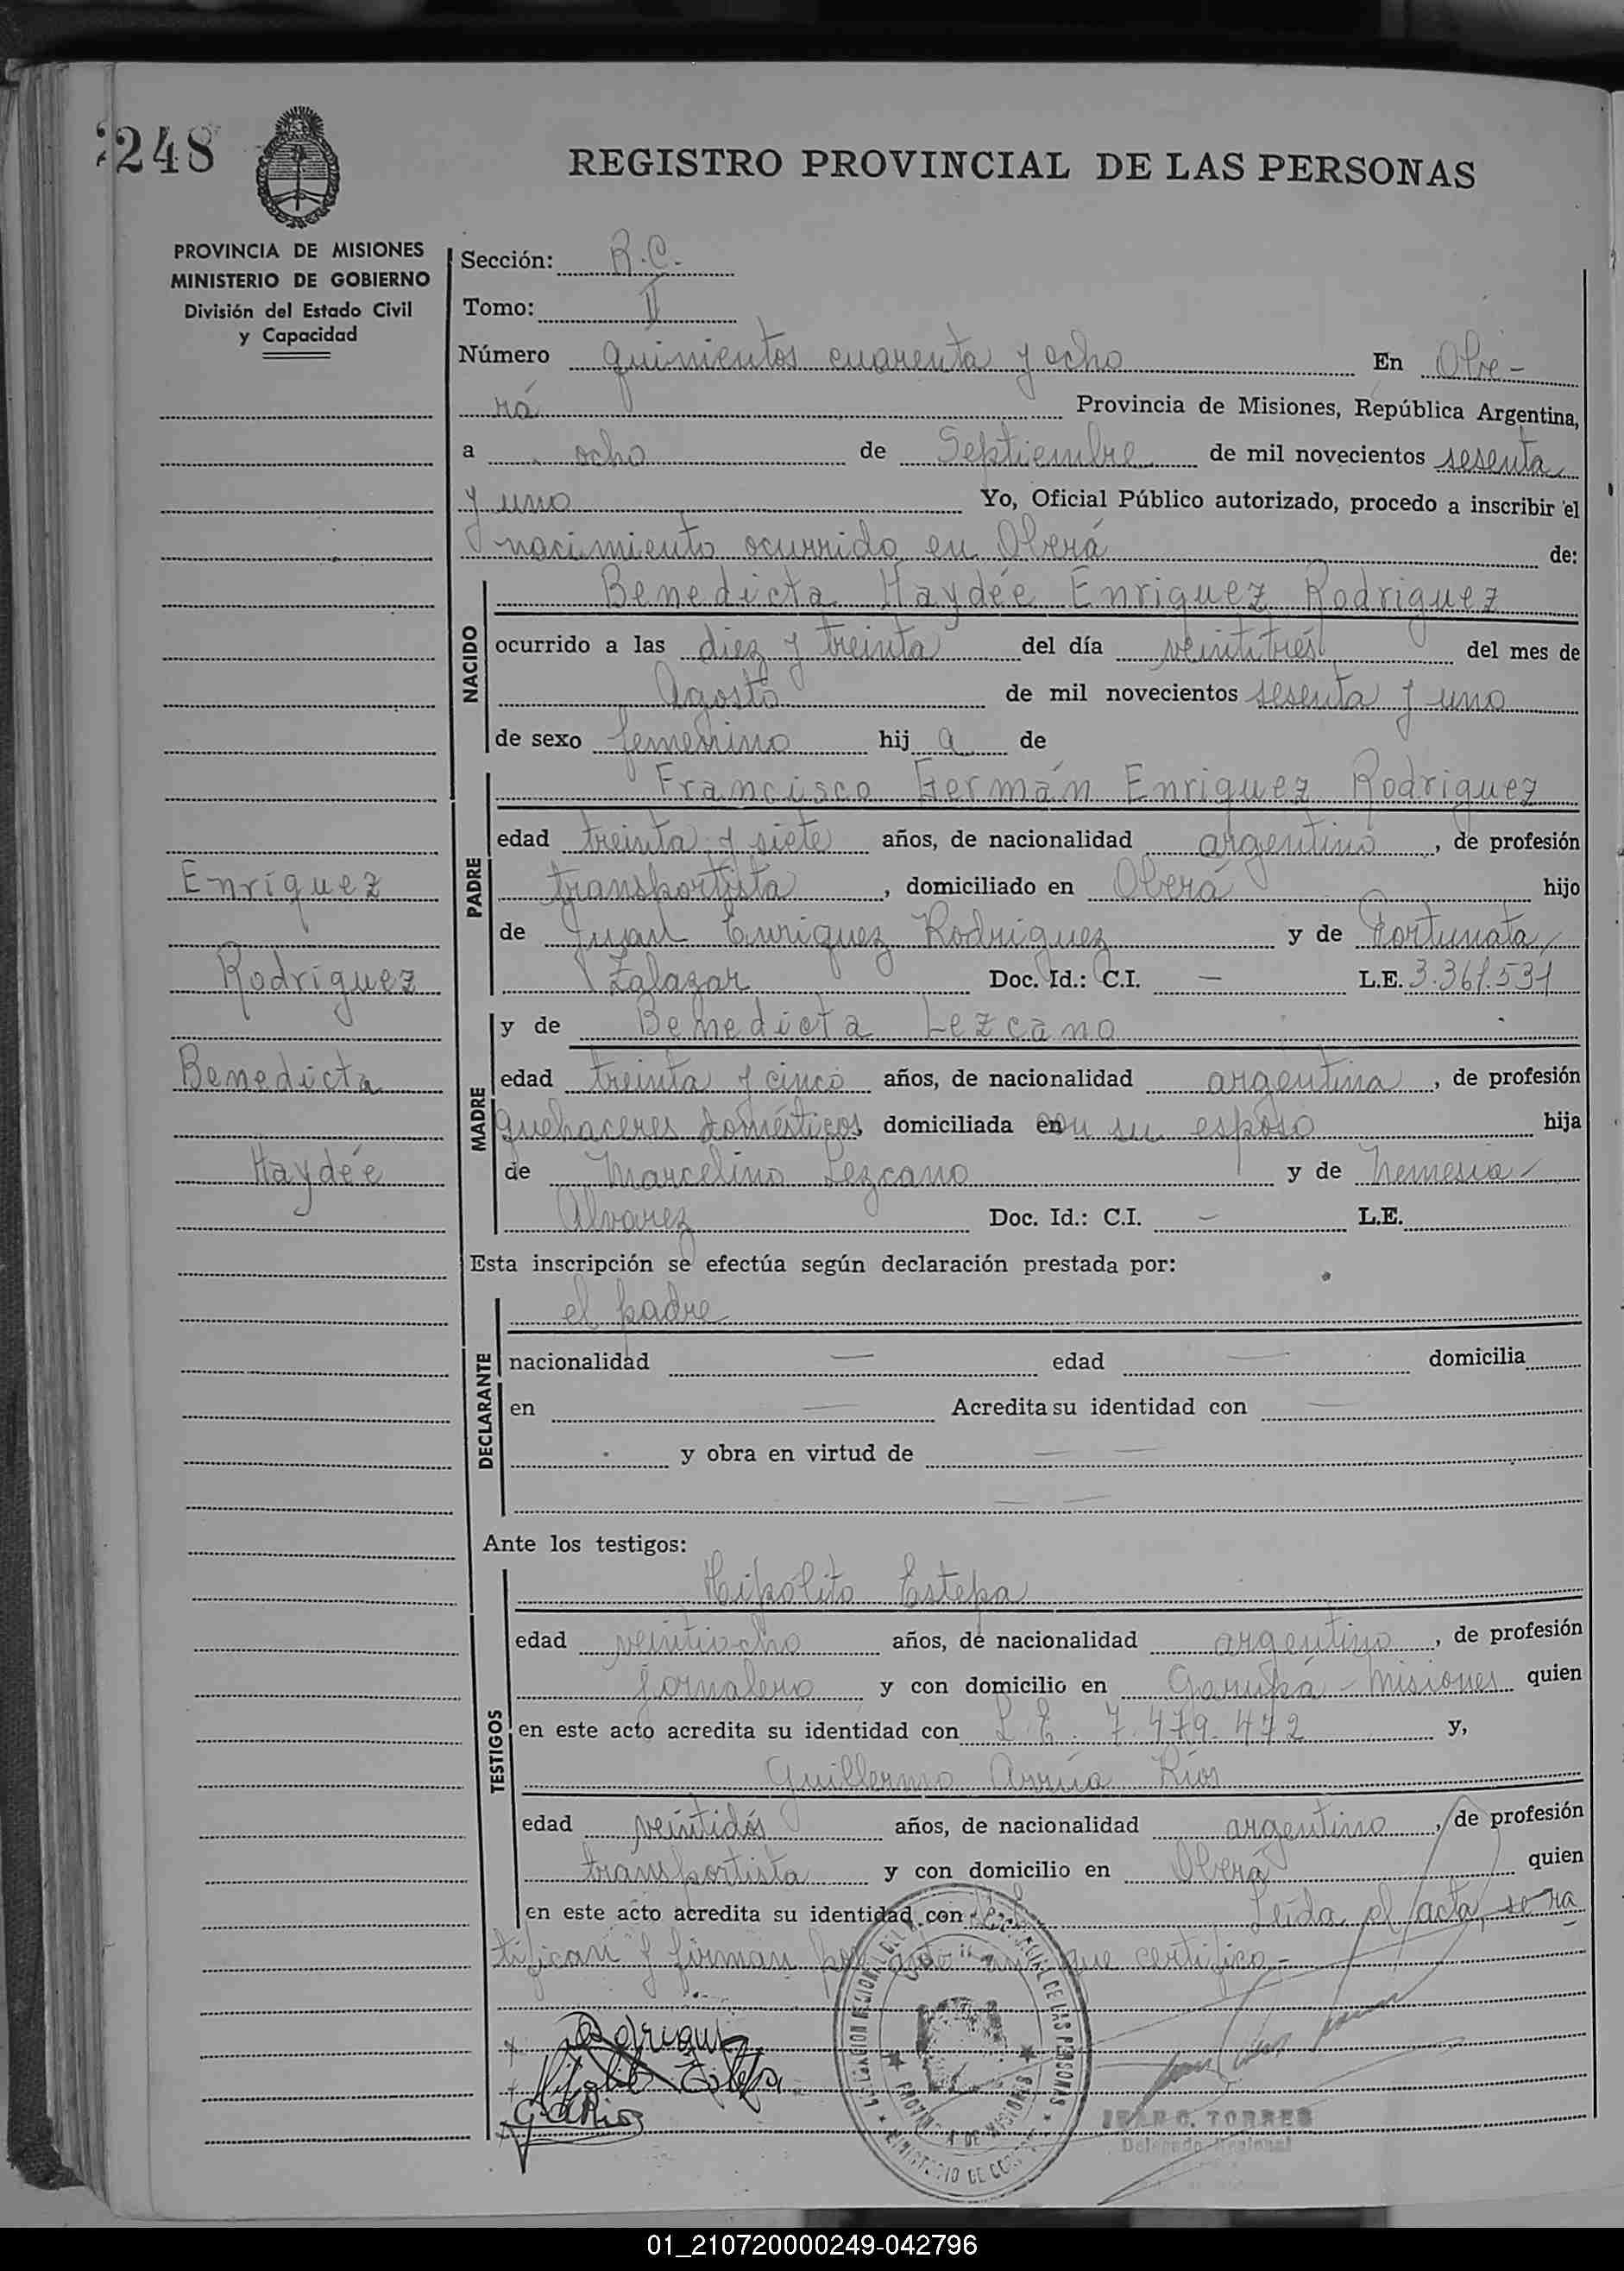 248
REGISTRO PROVINCIAL DE LAS PERSONAS
PROVINCIA DE MISIONES
MINISTERIO DE GOBIERNO
División del Estado Civil
y Capacidad
Sección: R.C.
Tomo: II
Número quinientos cuarenta y ocho En Obe-
rá Provincia de Misiones, República Argentina,
a ocho de Septiembre de mil novecientos sesenta
y uno Yo, Oficial Público autorizado, procedo a inscribir el
nacimiento ocurrido en Oberá de:
NACIDO
Benedicta Haydée Enriquez Rodriguez
ocurrido a las diez y treinta del día veintitrés del mes de
Agosto de mil novecientos sesenta y uno
de sexo femenino hij a de
PADRE
Francisco Germán Enriquez Rodriguez
edad treinta y siete años, de nacionalidad argentino, de profesión
Enríquez
transportista, domiciliado en Oberá hijo
de Juan Enriquez Rodriguez y de Fortunata
Rodríguez
Zalazar Doc. Id.: C.I. — L.E. 3.361.531
MADRE
y de Benedicta Lezcano
Benedicta
edad treinta y cinco años, de nacionalidad argentina, de profesión
quehaceres domésticos, domiciliada en con su esposo hija
Haydée
de Marcelino Lezcano y de Nemesia
Alvarez Doc. Id.: C.I. — L.E.
Esta inscripción se efectúa según declaración prestada por:
DECLARANTE
el padre
nacionalidad — edad — domicilia
en — Acredita su identidad con —
y obra en virtud de — —
Ante los testigos:
TESTIGOS
Hipólito Estepa
edad veintiocho años, de nacionalidad argentino, de profesión
jornalero y con domicilio en Garupá - Misiones quien
en este acto acredita su identidad con L.E. 7.479.472 y,
Guillermo Arrúa Ríos
edad veintidós años, de nacionalidad argentino, de profesión
transportista y con domicilio en Oberá quien
en este acto acredita su identidad con Leida el acta, se ra
tifican y firman por ante mi que certifico.-
Hipolito Estepa
G A Rios
DELEGACION REGIONAL DE LAS PERSONAS
PROVINCIA DE MISIONES
MINISTERIO DE
C. TORRES
Delegado Regional
01_210720000249-042796